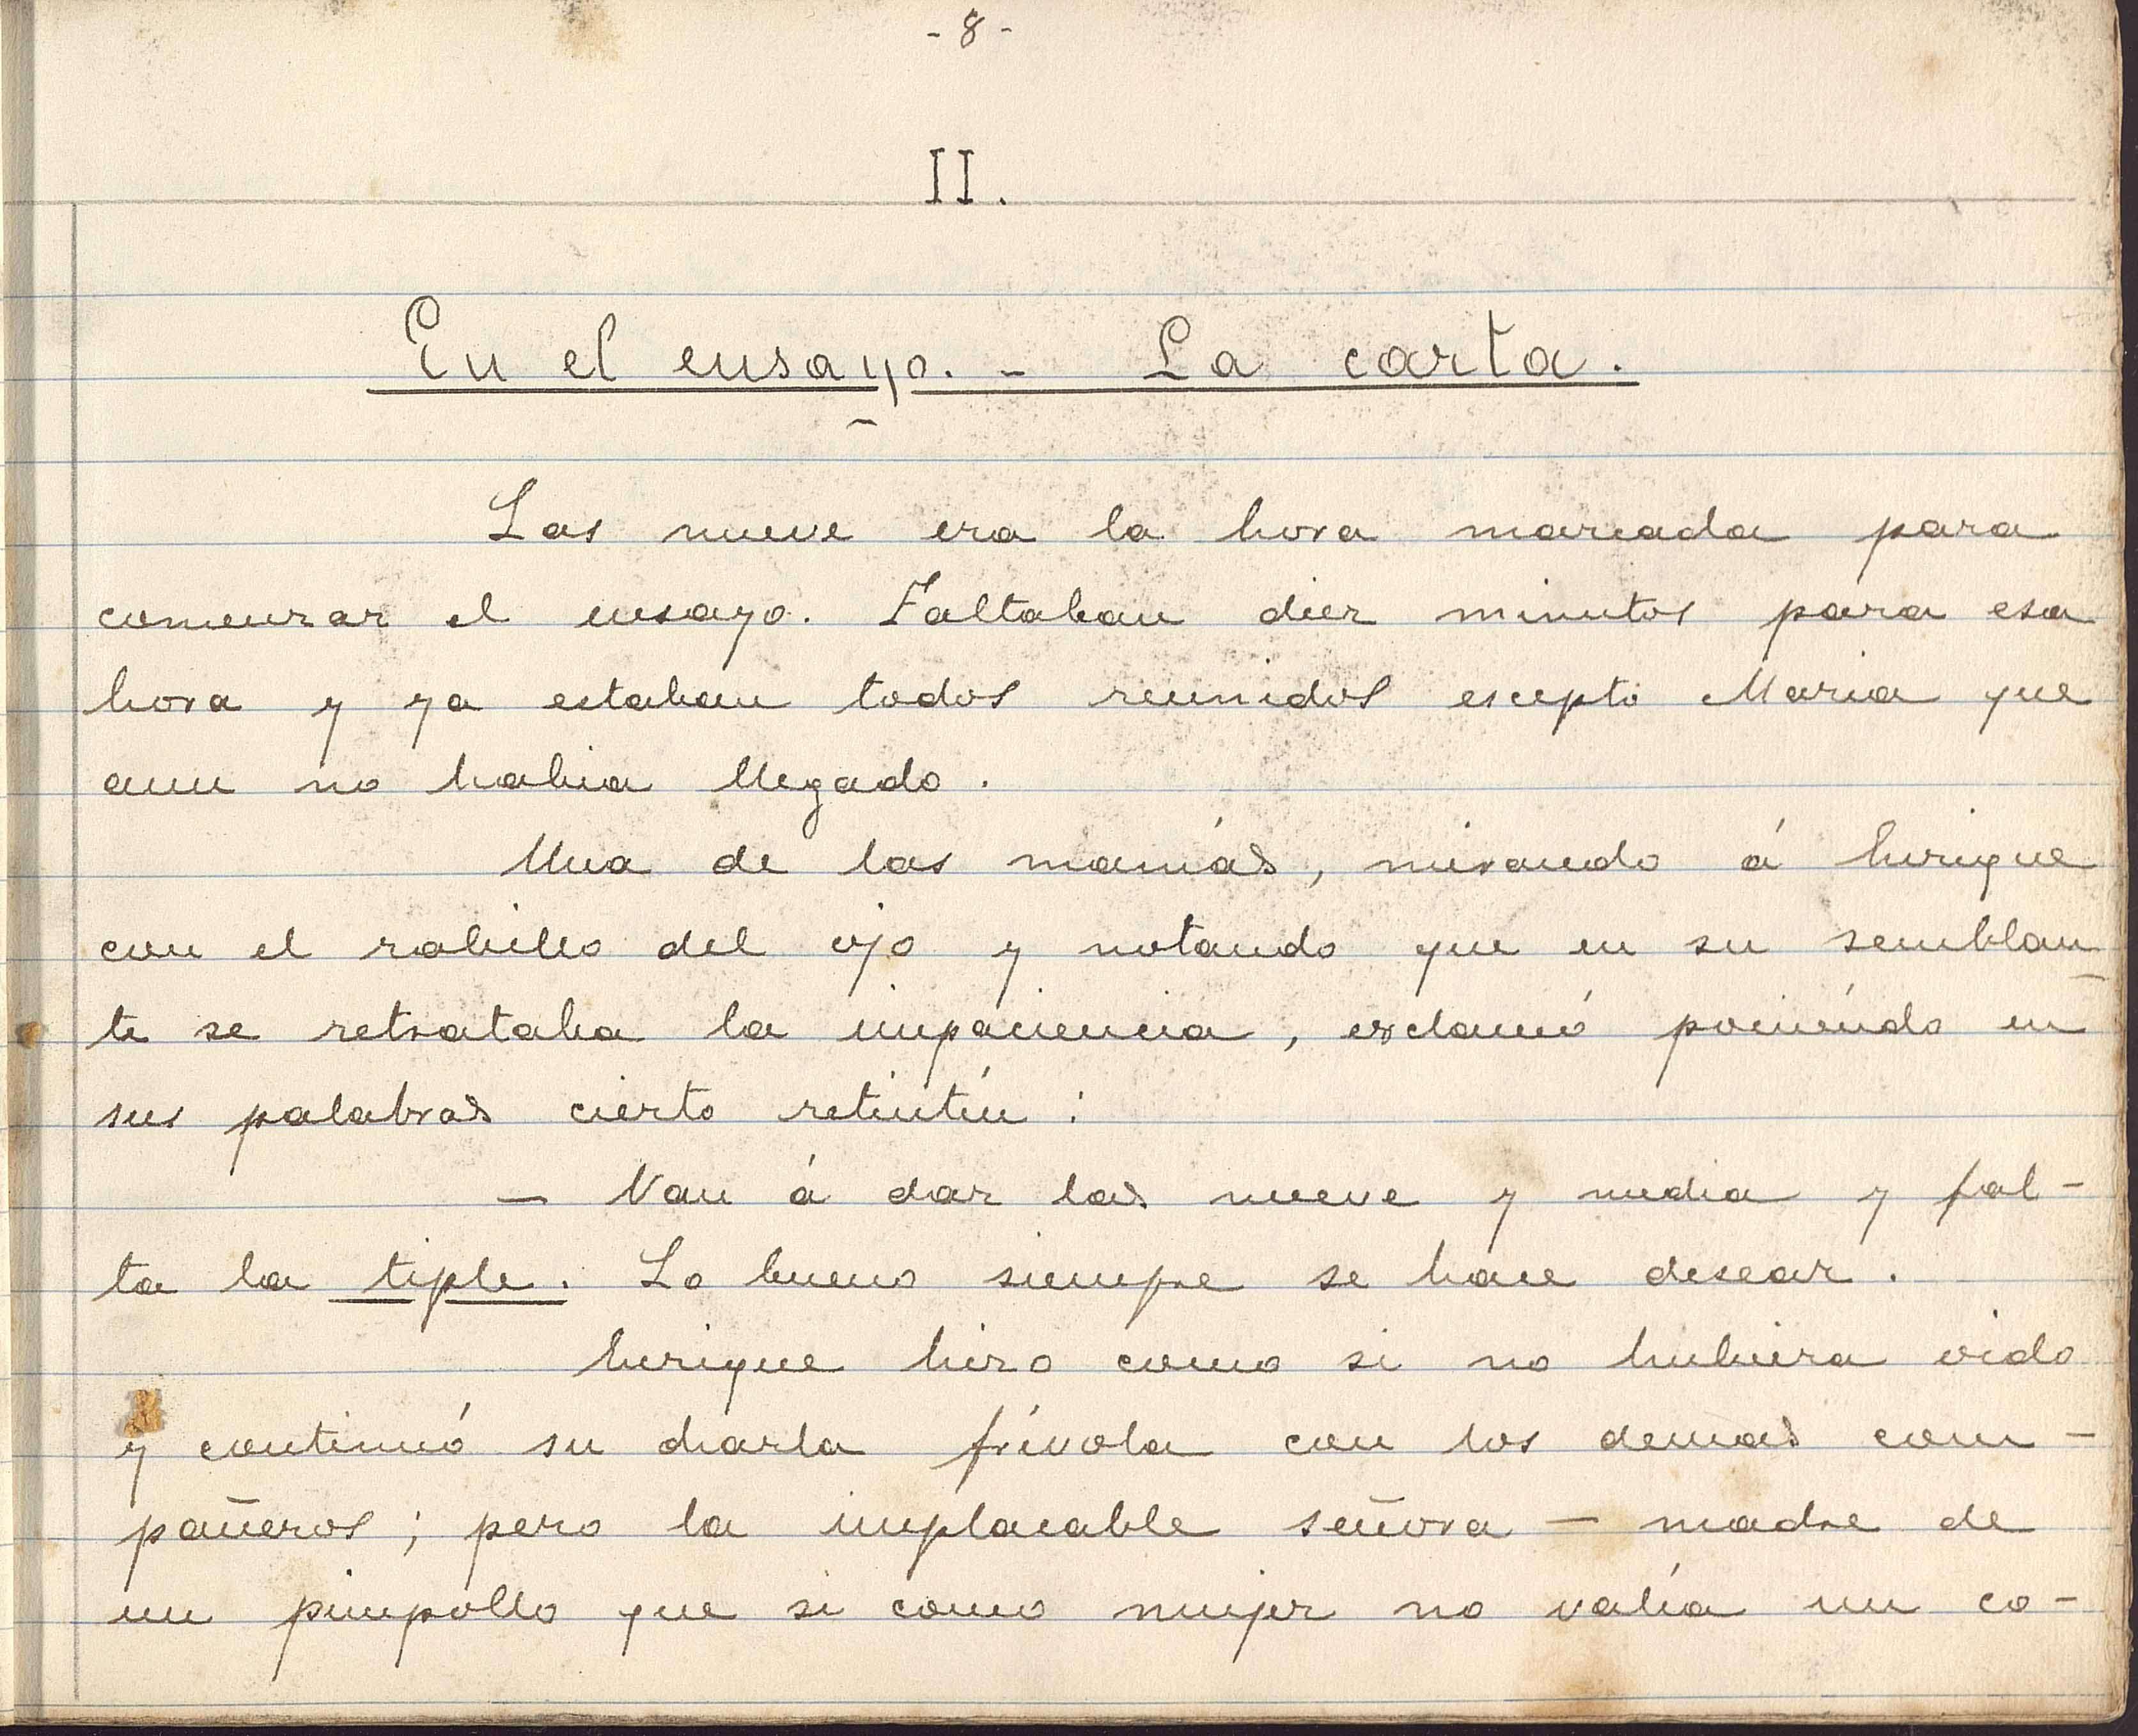 - 8 -
II.
En el ensayo. - La carta.
Las nueve era la hora marcada para
comenzar el ensayo. Faltaban diez minutos para esa
hora y ya estaban todos reunidos escepto Maria que
aun no habia llegado.
Una de las mamás, mirando á Enrique
con el rabillo del ojo y notando que en su semblan-
te se retrataba la impaciencia, exclamó poniendo en
sus palabras cierto retintín:
— Van á dar las nueve y media y fal-
ta la tiple. Lo bueno siempre se hace desear.
Enrique hizo como si no hubiera oido
y continuó su charla frívola con los demas com-
pañeros; pero la implacable señora — madre de
un pimpollo que si como mujer no valía un co-